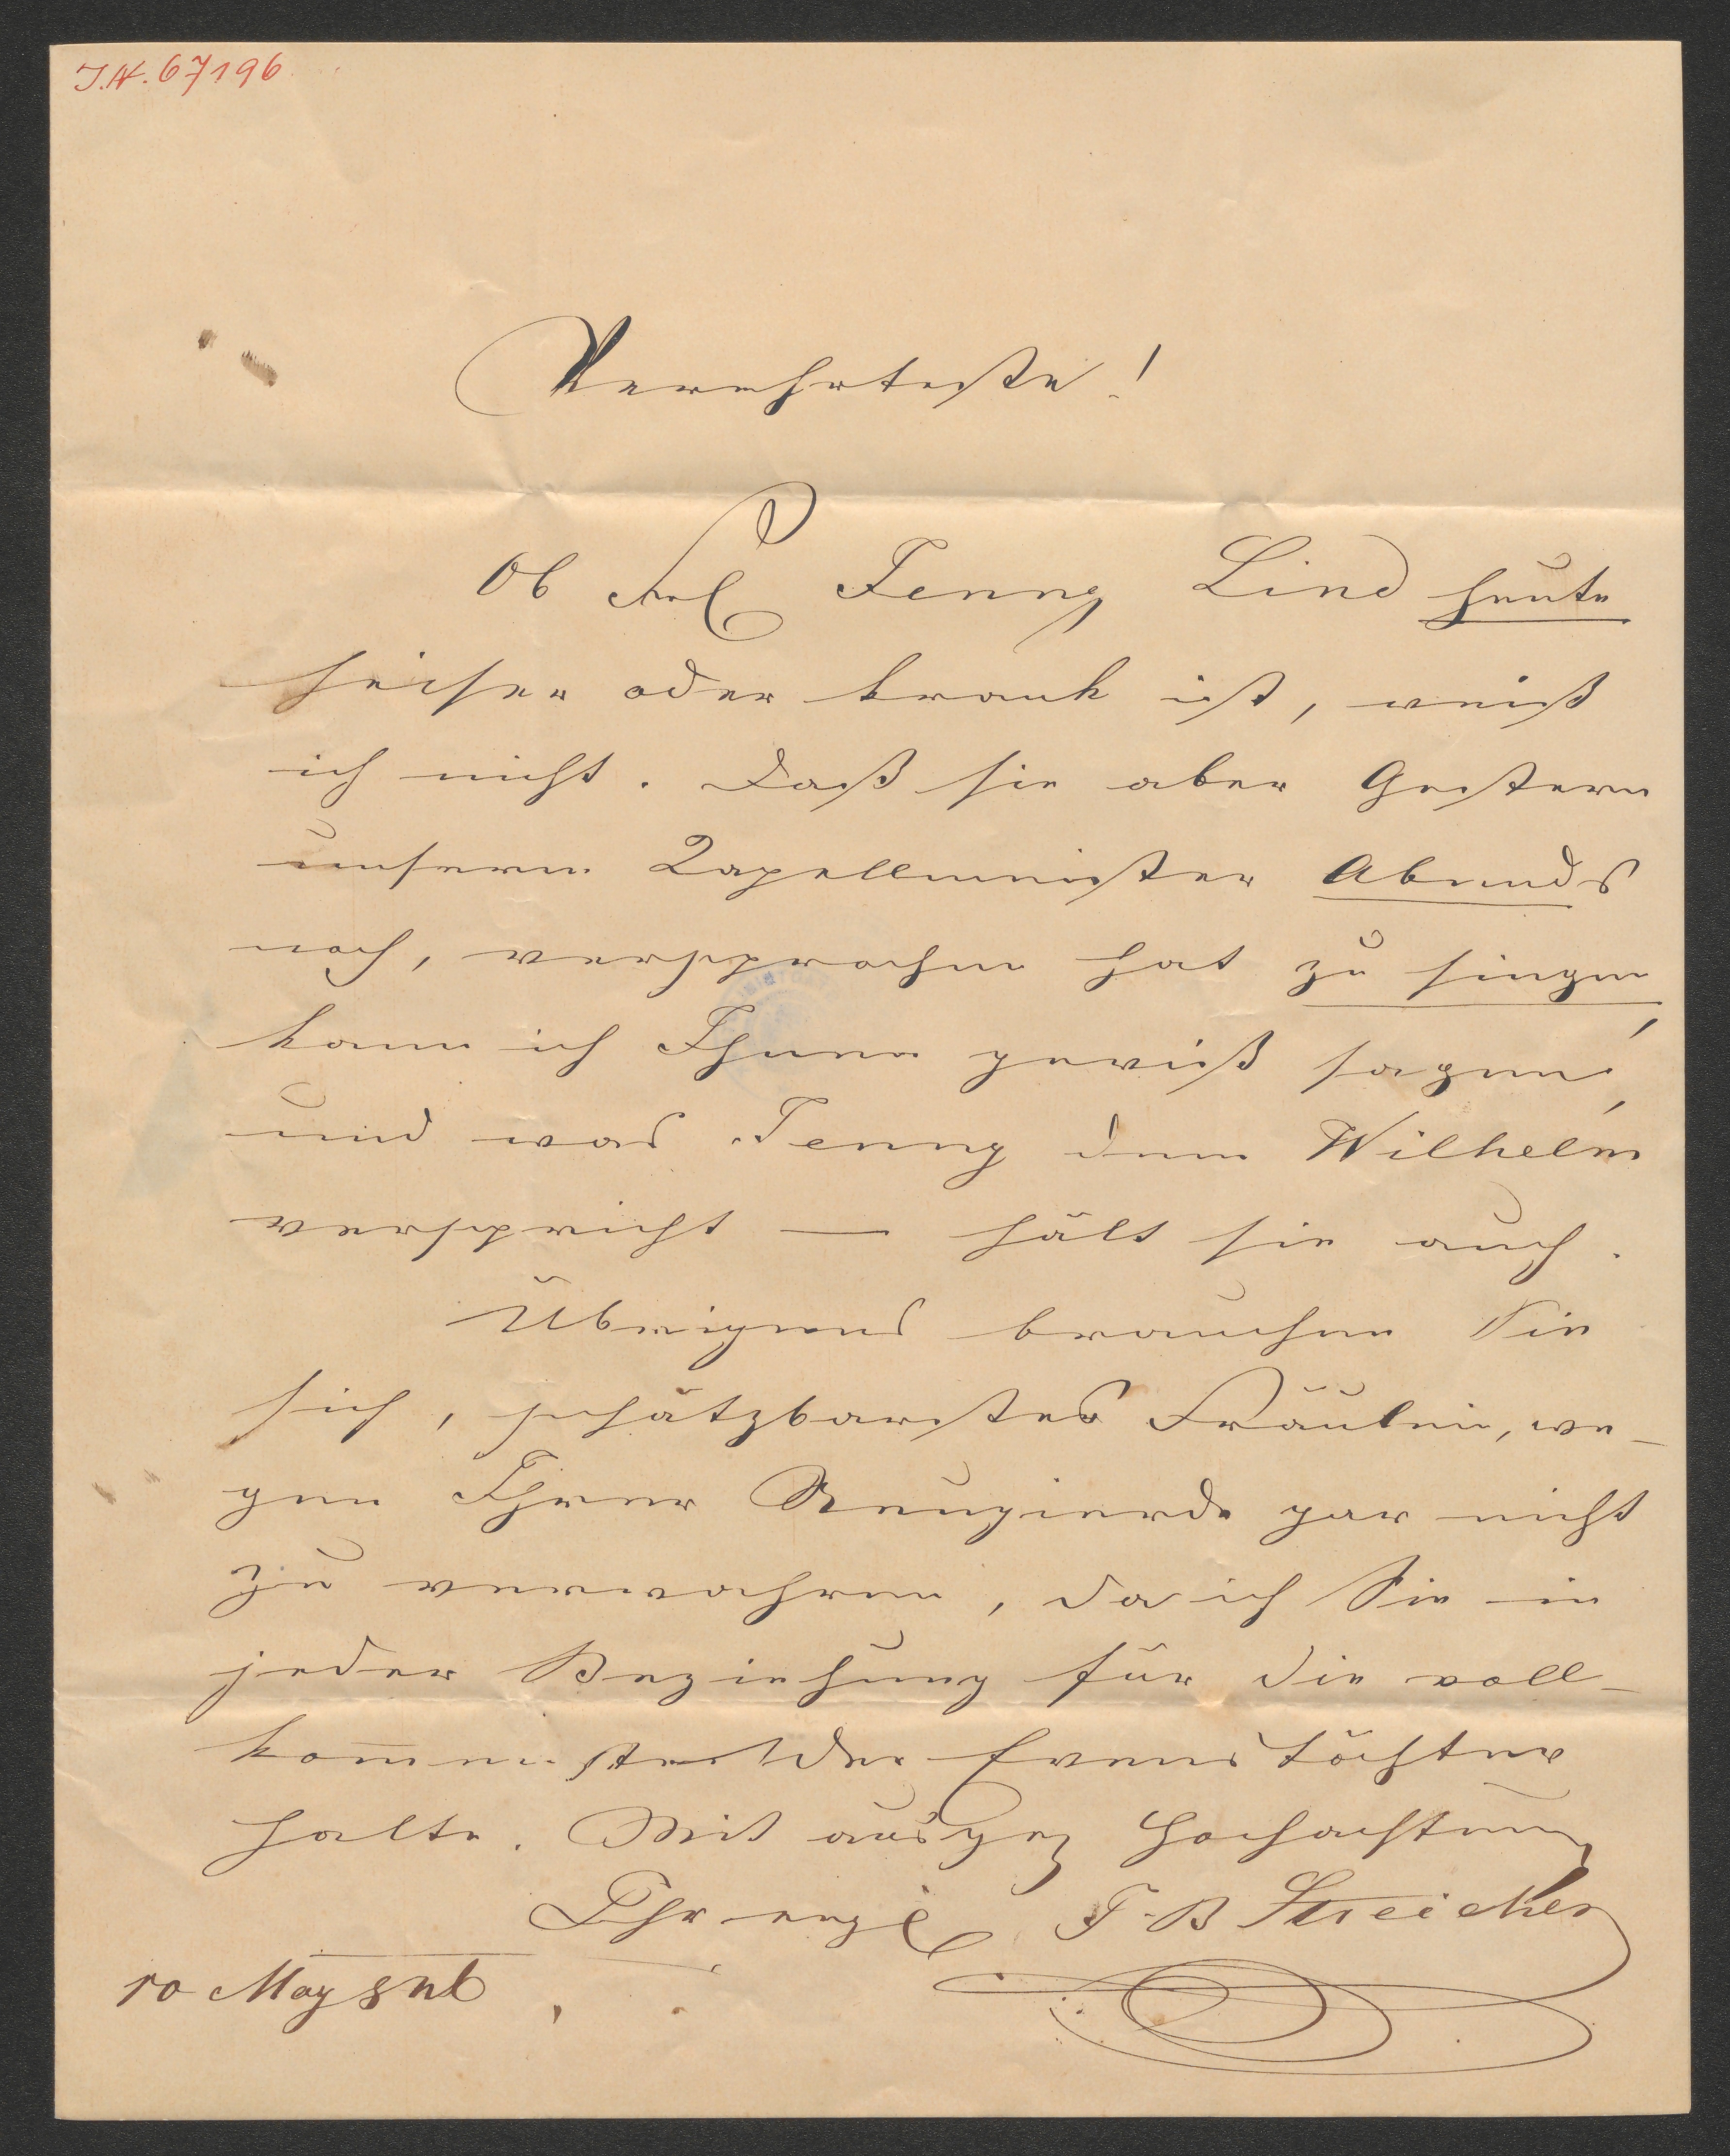 I.N. 67196
Verehrteste!
Ob Frl Jenny Lind heute
heiser oder krank ist, weiß
ich nicht. Daß sie aber Gestern
unserm Kapellmeister Abends
noch, versprochen hat zu singen,
kann ich Ihnen gewiß sagen,
und was Jenny dem Wilhelm
verspricht — hält sie auch.
Übrigens brauchen Sie
sich, schätzbarstes Fräulein, we-
gen Ihrer Neugierde gar nicht
zu verwahren, da ich Sie in
jeder Beziehung für die voll-
kommenste der Evenstöchter
halte. Mit ausgez Hochachtung
Ihr ergb J. B Streicher
10 May 846